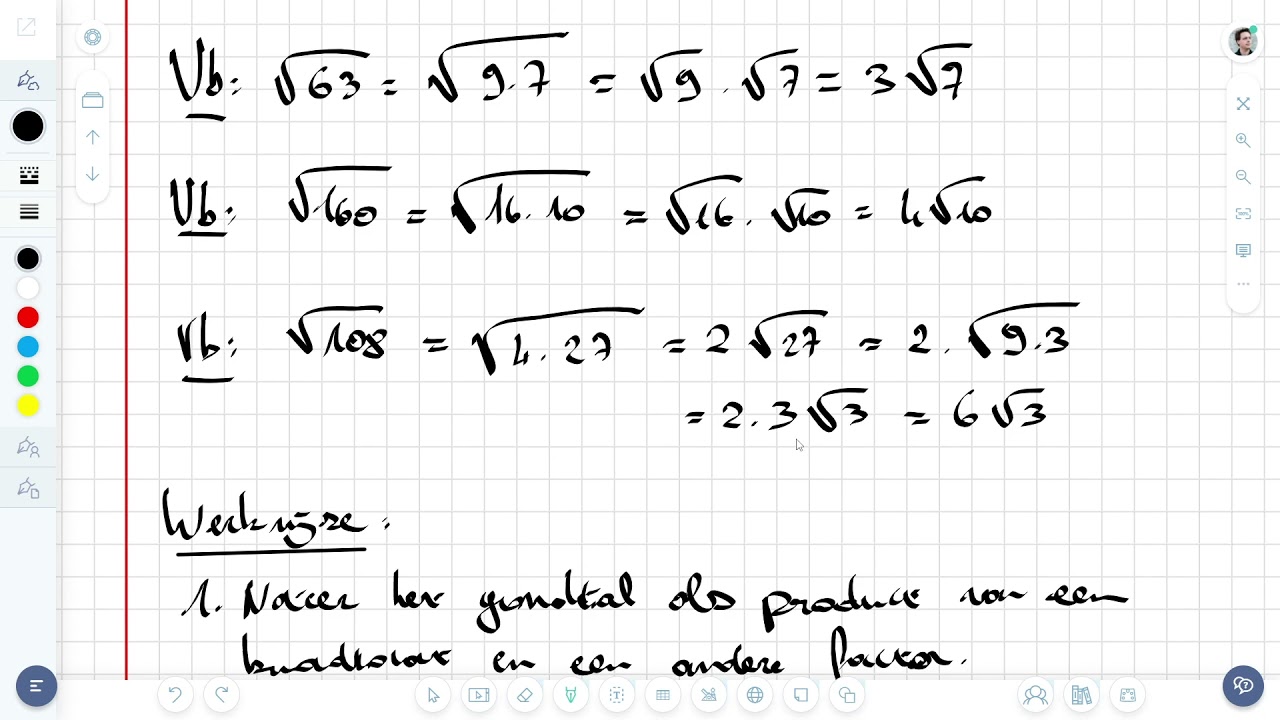 Vb: √63 = √9.7 = √9 . √7 = 3√7
Vb: √160 = √16.10 = √16 . √10 = 4√10
Vb: √108 = √4.27 = 2√27 = 2.√9.3
= 2.3√3 = 6√3
Werkwijze:
1. Noteer het grondtal als product van een
kwadraat en een andere factor.